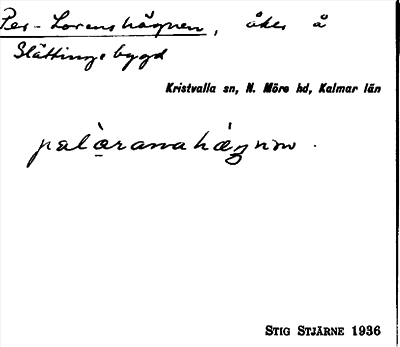 Per-Lorens hägnen, åker å
Slättinge bygd
Kristvalla sn, N. Möre hd, Kalmar län
STIG STJÄRNE 1936